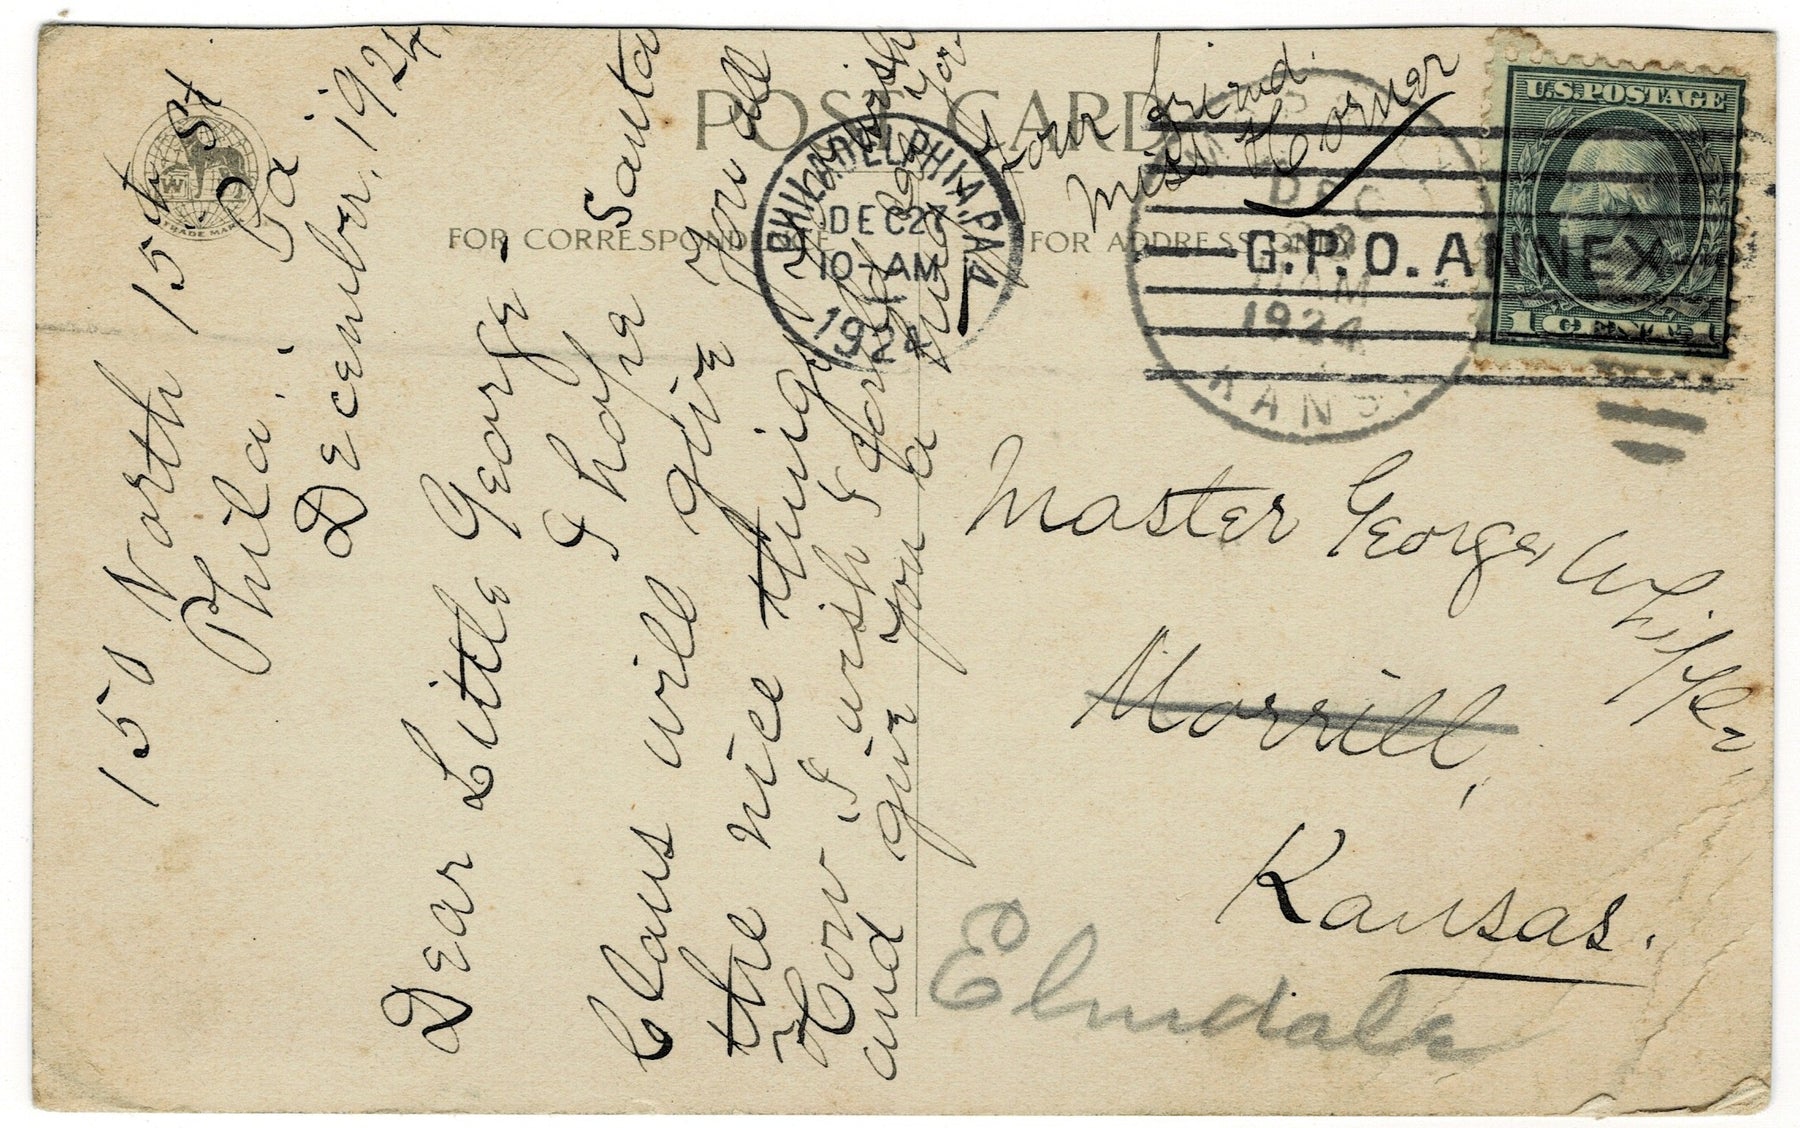 150 North 15th St.
Phila. Pa
December, 1924.
Dear Little George -
I hope Santa
Claus will give you all
the nice things you wish
for.
How I wish I could see you
and give you a hug
Your friend.
Miss Horner
POST CARD
FOR CORRESPONDENCE
FOR ADDRESS ONLY
TRADE MARK
PHILADELPHIA, PA.
DEC 27
10-AM
1924
G.P.O. ANNEX
DEC
AM
1924
KANS.
U.S. POSTAGE
1 CENT 1
Master George Whipple,
Morrill,
Kansas.
Elmdale